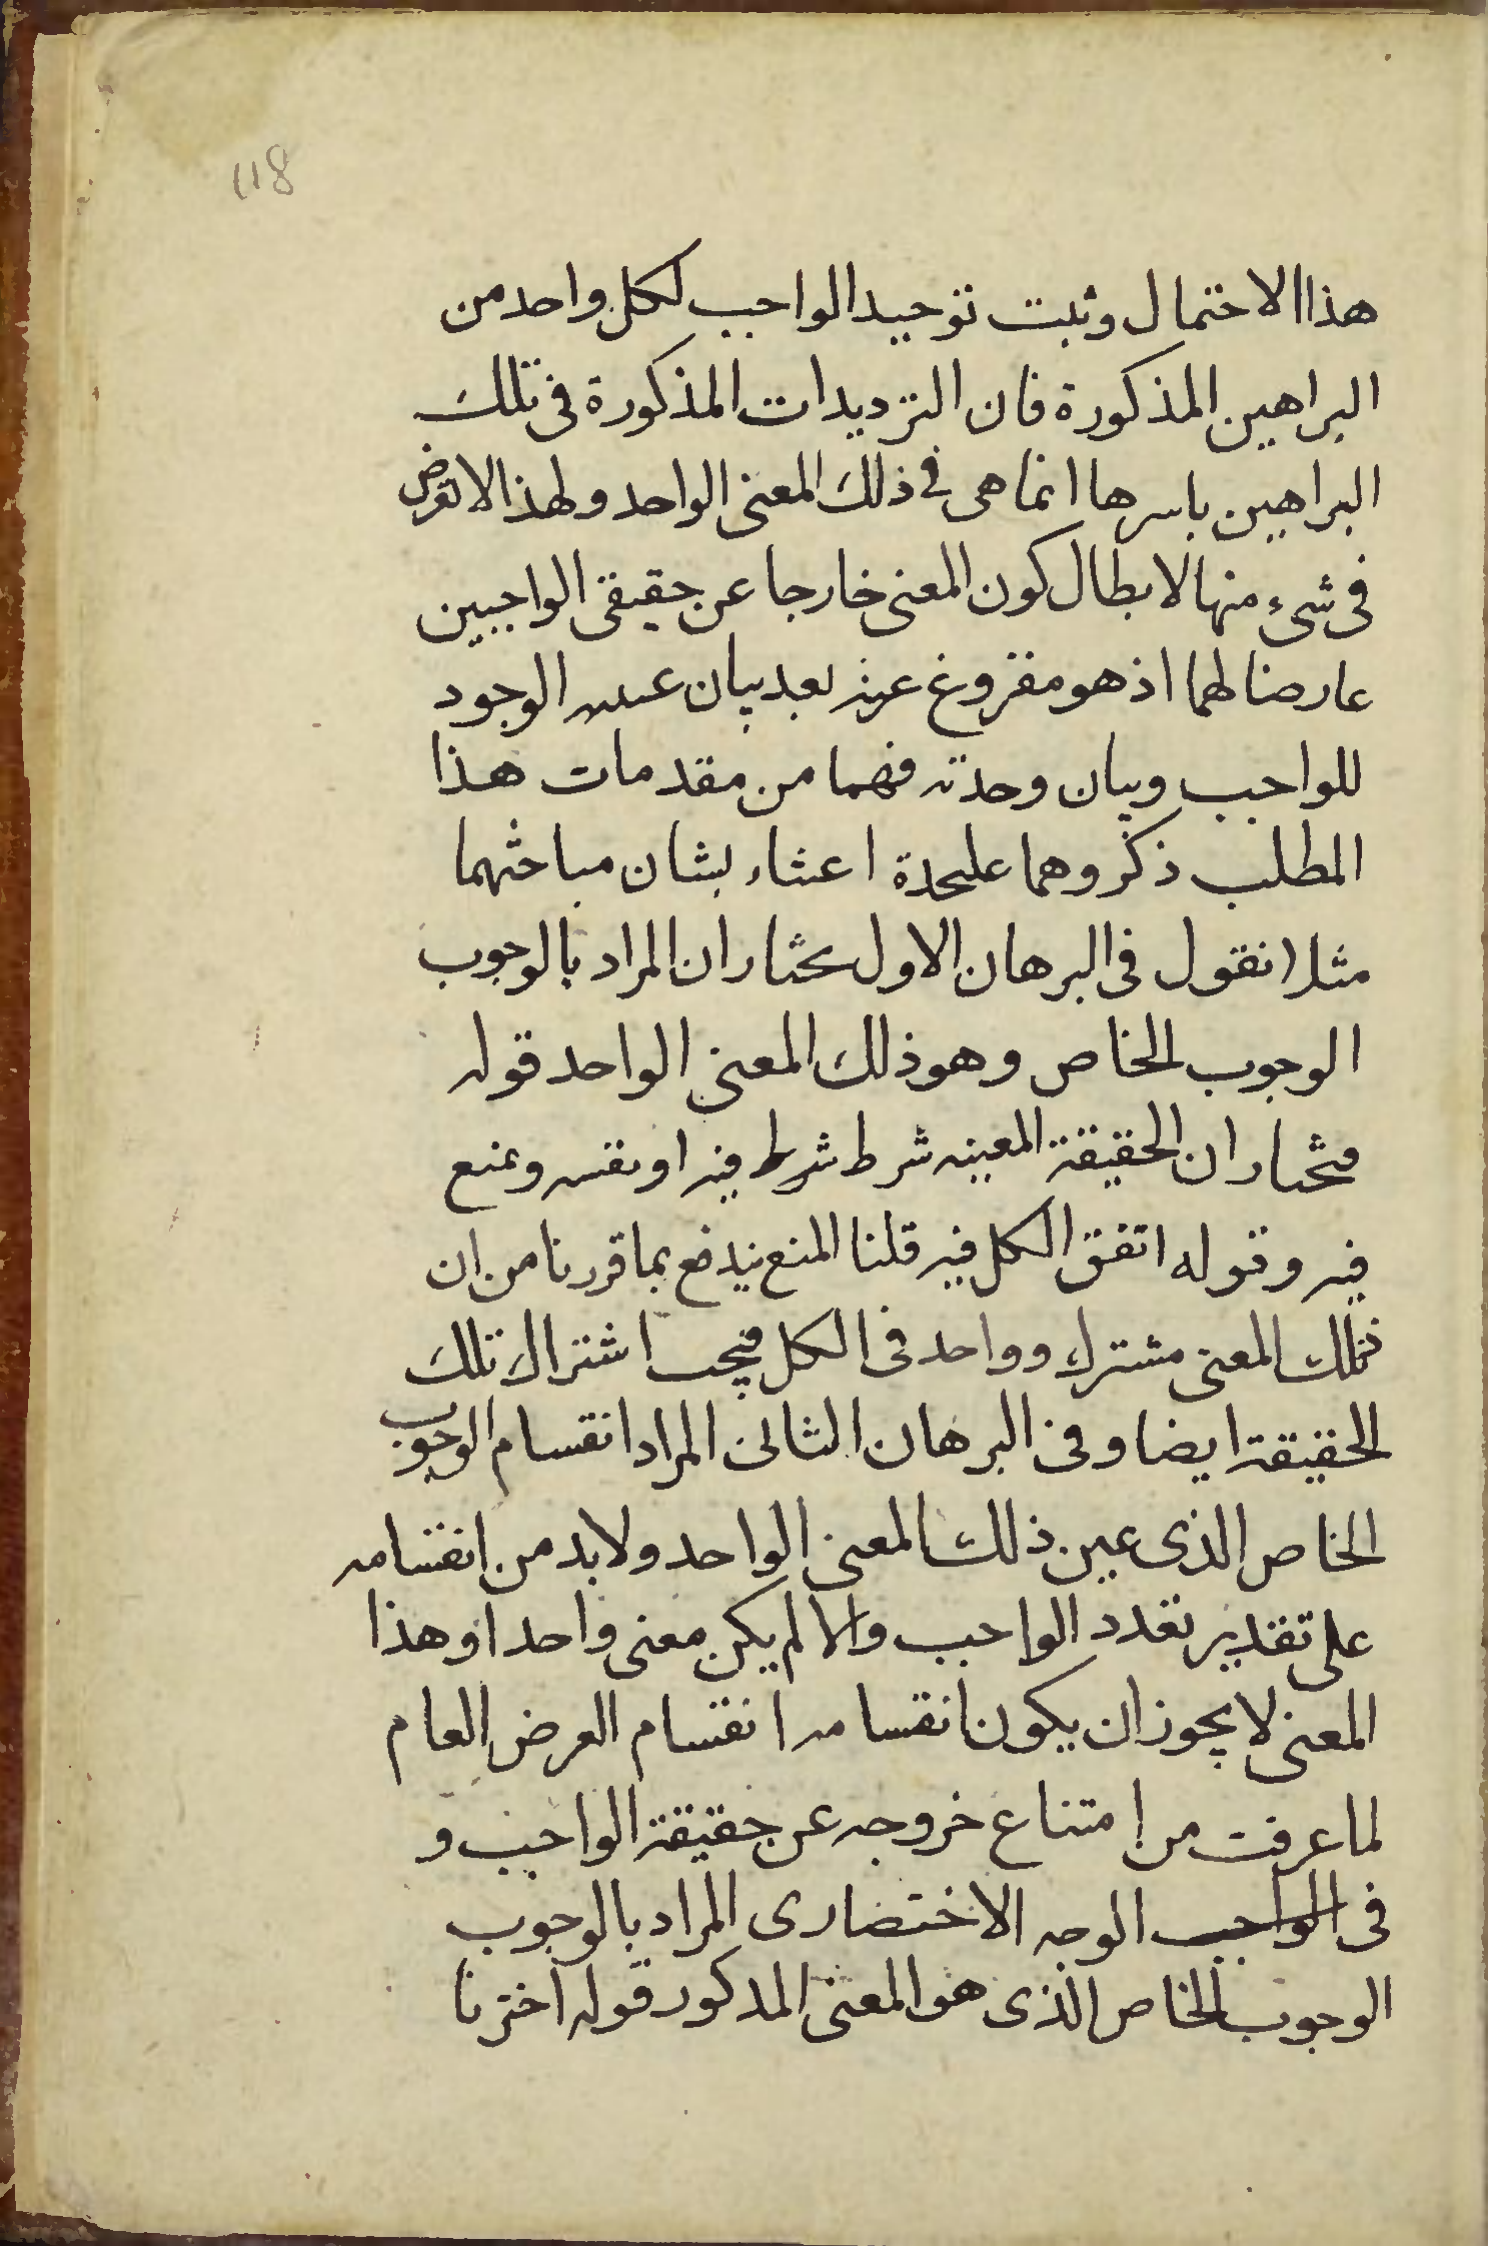 118
هذا الاحتمال وثبت توحيد الواجب لكل واحد من
البراهين المذكورة فان الترديدات المذكورة فى تلك
البراهين باسرها انما هى فى ذلك المعنى الواحد ولهذا لا تعرض
فى شىء منها لابطال كون المعنى خارجا عن حقيقى الواجبين
عارضا لهما اذ هو مفروغ عنه بعد بيان عينيه الوجود
للواجب وبيان وحدته فهما من مقدمات هذا
المطلب ذكروهما عليحدة اعتناء بشان مباحثهما
مثلا نقول فى البرهان الاول نختار ان المراد بالوجوب
الوجوب الخاص وهو ذلك المعنى الواحد قوله
فنختار ان الحقيقة المعينه شرط شرط فيه او نفسه ونمنع
فيه وقوله اتفق الكل فيه قلنا المنع يندفع بما قررنا من ان
ذلك المعنى مشترك وواحد فى الكل فيجب اشتراك تلك
الحقيقة ايضا وفى البرهان الثانى المراد انقسام الوجوب
الخاص الذى عين ذلك المعنى الواحد ولا بد من انقسامه
على تقدير تعدد الواجب والا لم يكن معنى واحدا وهذا
المعنى لا يجوز ان يكون انقسامه انقسام العرض العام
لما عرفت من امتناع خروجه عن حقيقة الواجب و
فى الواجب الوجه الاختصارى المراد بالوجوب
الوجوب الخاص الذى هو المعنى المذكور قوله اخترنا